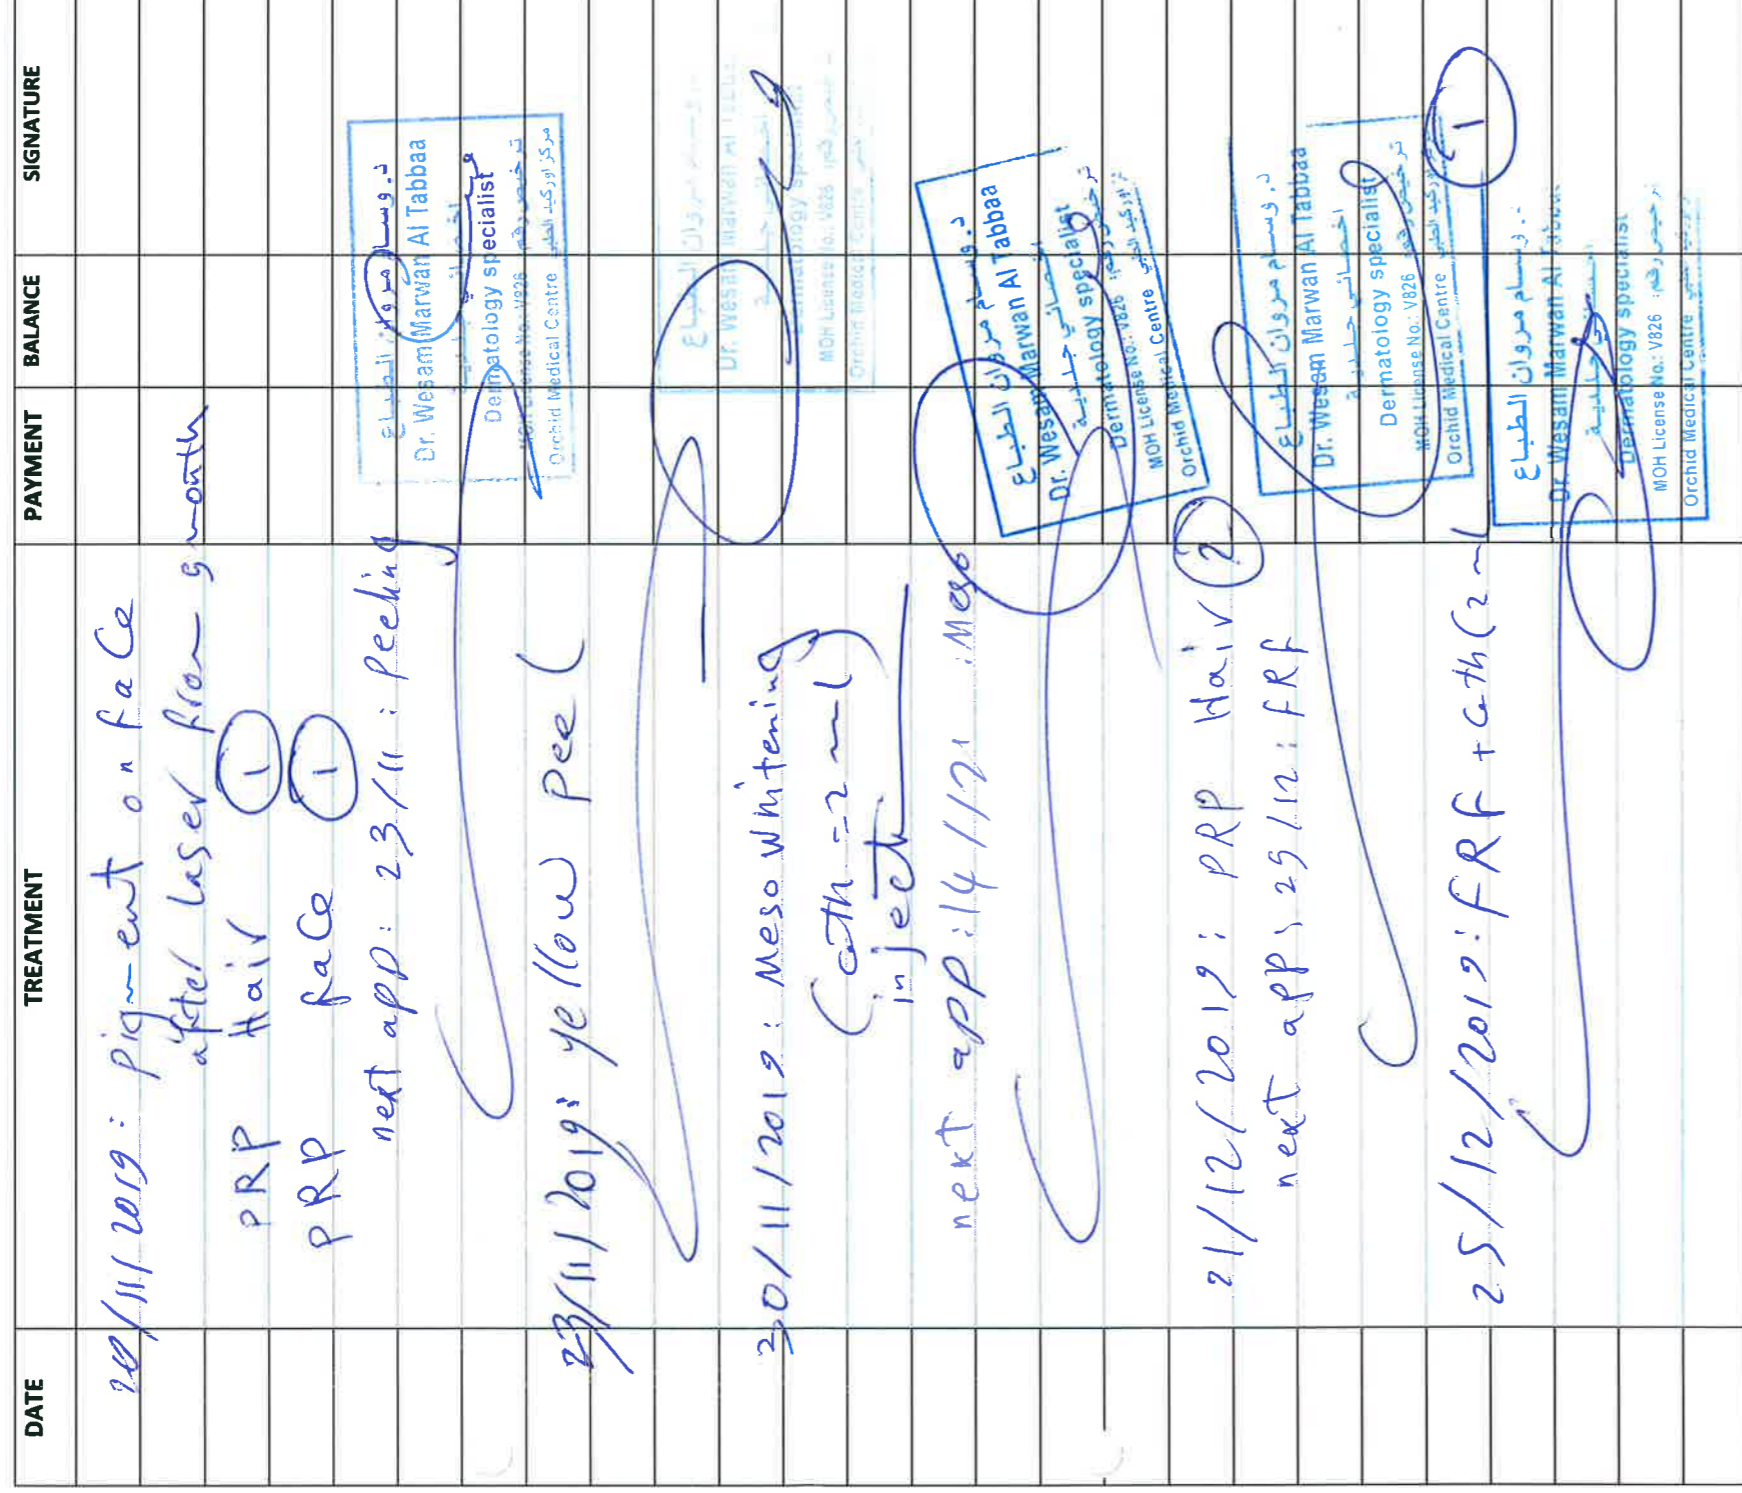 DATE TREATMENT PAYMENT BALANCE SIGNATURE
/11/2019: Pigment on face
after laser from 9 month
PRP Hair 1
PRP face 1
next app: 23/11: Peeling
د. وسام مروان الطباع
Dr. Wesam Marwan Al Tabbaa
Dermatology specialist
MOH License No.: V826 ترخيص رقم
Orchid Medical Centre مركز اوركيد الطبي
23/11/2019: yellow peel
Dr. Wesam Marwan Al
Dermatology specialist
MOH License No.: V826
Orchid Medical Centre
30/11/2019: Meso whitening
(Gth = 2 ml)
inject
next app: 14/12: Meso
د. وسام مروان الطباع
Dr. Wesam Marwan Al Tabbaa
أخصائي جلدية
Dermatology specialist
MOH License No.: V826 ترخيص رقم
Orchid Medical Centre
21/12/2019: PRP Hair 2
next app, 25/12: FRF
د. وسام مروان الطباع
Dr. Wesam Marwan Al Tabbaa
اخصائي جلدية
Dermatology specialist
MOH License No.: V826 ترخيص رقم
Orchid Medical Centre مركز اوركيد الطبي
25/12/2019: FRF + Gth (2 ml 1
وسام مروان الطباع
Dr. Wesam Marwan Al Tabbaa
Dermatology specialist
MOH License No.: V826 ترخيص رقم
Orchid Medical Centre